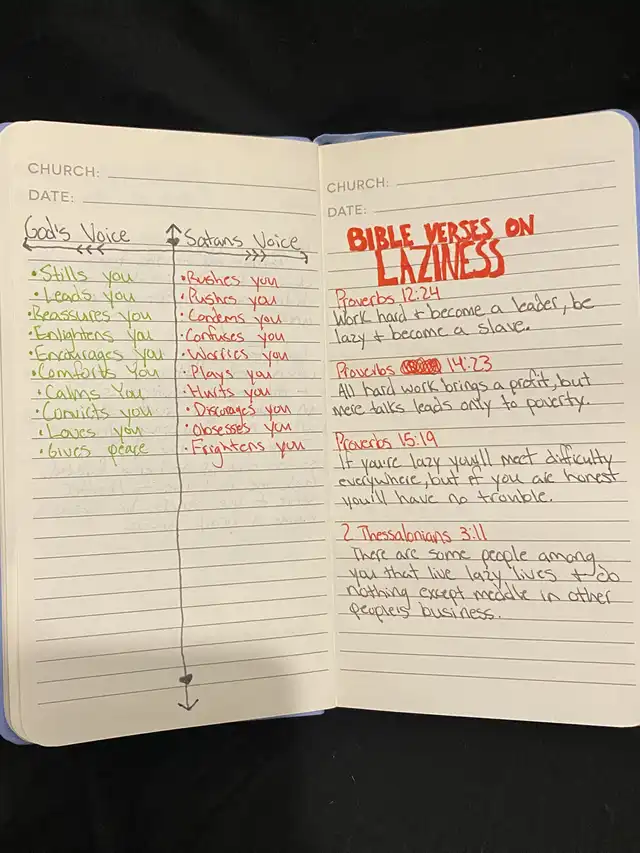 CHURCH:
DATE:
God's Voice
Satans Voice
•Stills you
•Leads you
•Reassures you
•Enlightens you
•Encourages you
•Comforts You
•Calms You
•Convicts you
•Loves you
•Gives peace
•Rushes you
•Pushes you
•Condems you
•Confuses you
•Worries you
•Plays you
•Hurts you
•Discourages you
•Obsesses you
•Frightens you
CHURCH:
DATE:
BIBLE VERSES ON
LAZINESS
Proverbs 12:24
Work hard + become a leader, be
lazy + become a slave.
Proverbs 14:23
All hard work brings a profit, but
mere talks leads only to poverty.
Proverbs 15:19
If you're lazy you'll meet difficulty
everywhere, but if you are honest
you'll have no trouble.
2 Thessalonians 3:11
There are some people among
you that live lazy lives + do
nothing except meddle in other
people's business.